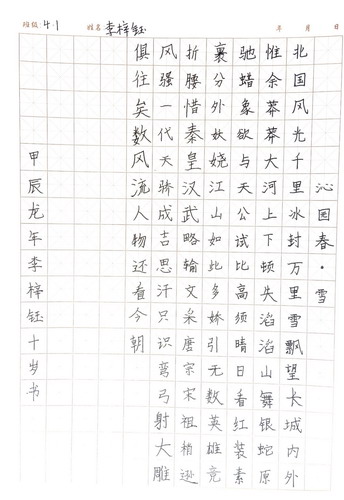 班级: 4.1 姓名 李梓钰 年 月 日
沁国春·雪
北国风光千里冰封万里雪飘望长城内外
惟余莽莽大河上下顿失滔滔山舞银蛇原
驰蜡象欲与天公试比高须晴日看红装素
裹分外妖娆江山如此多娇引无数英雄竞
折腰惜秦皇汉武略输文采唐宗宋祖稍逊
风骚一代天骄成吉思汗只识弯弓射大雕
俱往矣数风流人物还看今朝
甲辰龙年李梓钰十岁书